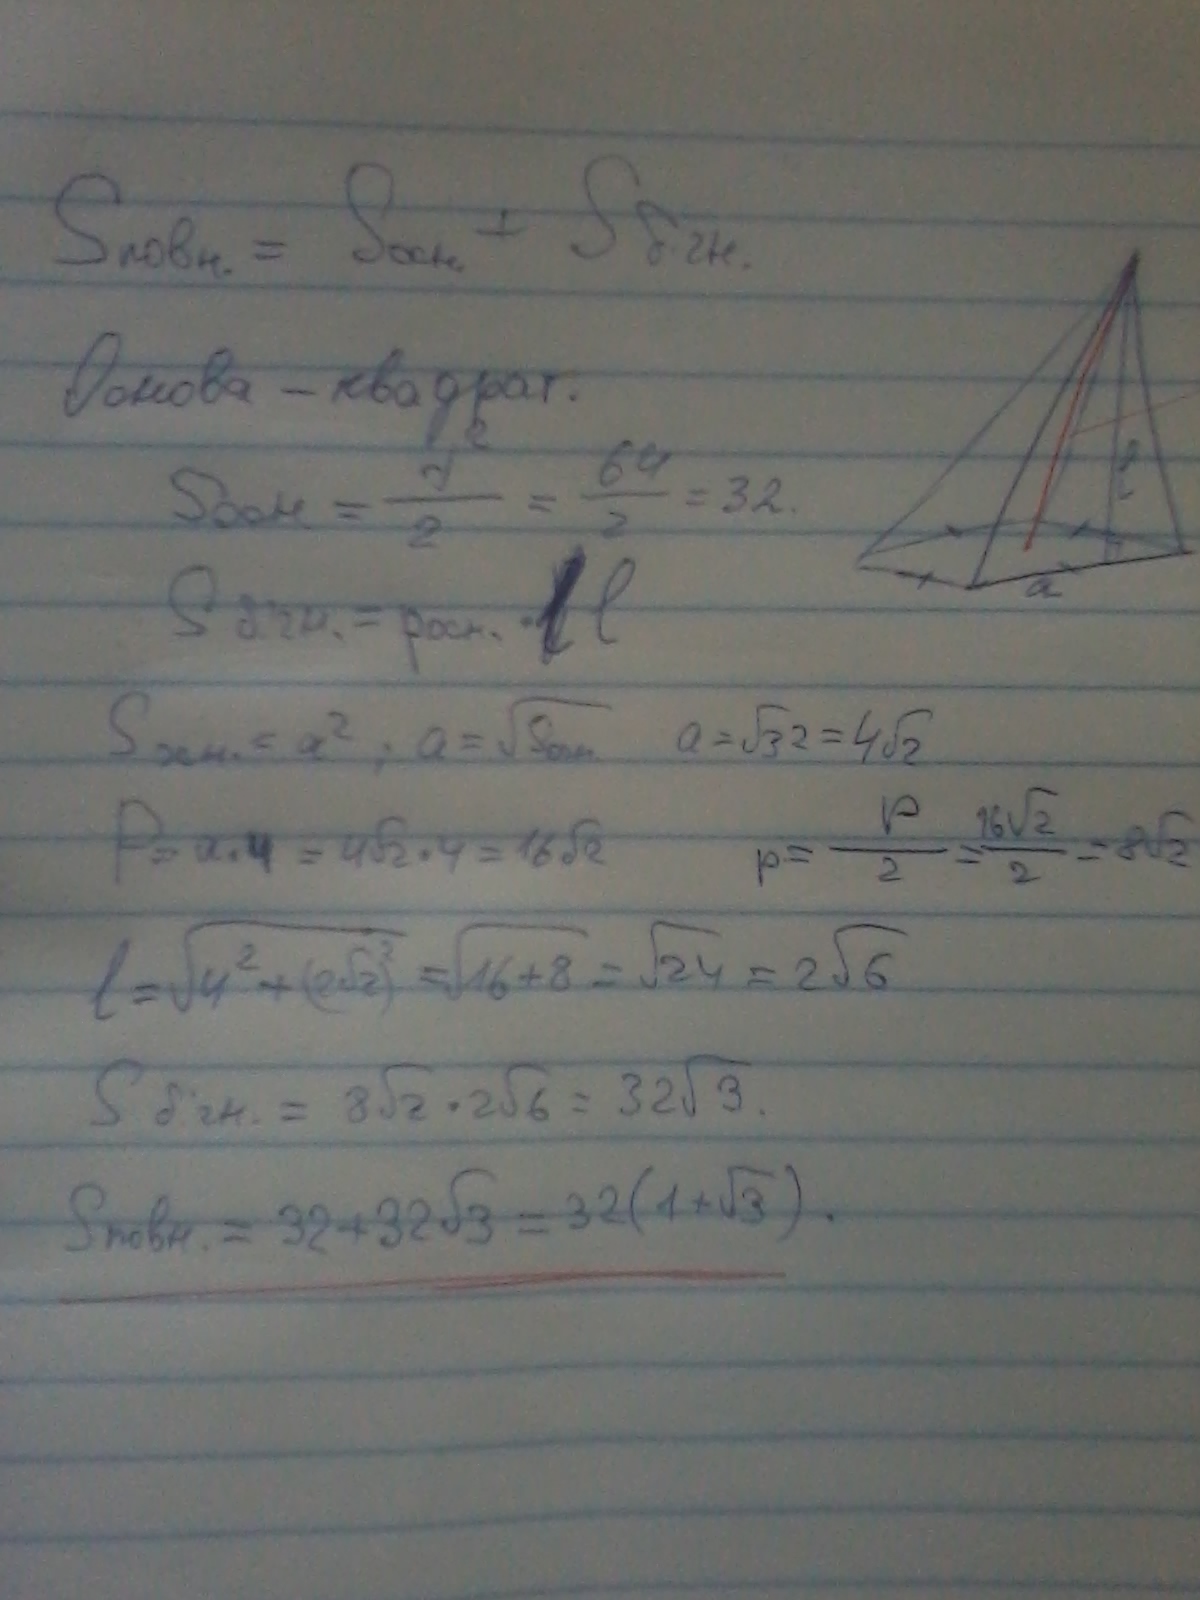 Sповн. = Sосн. + Sбічн.
Основа – квадрат.
Sосн = d²/2 = 64/2 = 32.
Sбічн. = pосн. · l
Sосн. = a², a = √Sосн a = √32 = 4√2
P = a·4 = 4√2·4 = 16√2 p = P/2 = 16√2/2 = 8√2
l = √4²+(2√2)² = √16+8 = √24 = 2√6
Sбічн. = 8√2·2√6 = 32√3.
Sповн. = 32+32√3 = 32(1+√3).
l
a